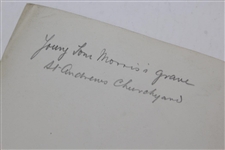 Young Tom Morris's grave
St Andrews Churchyard